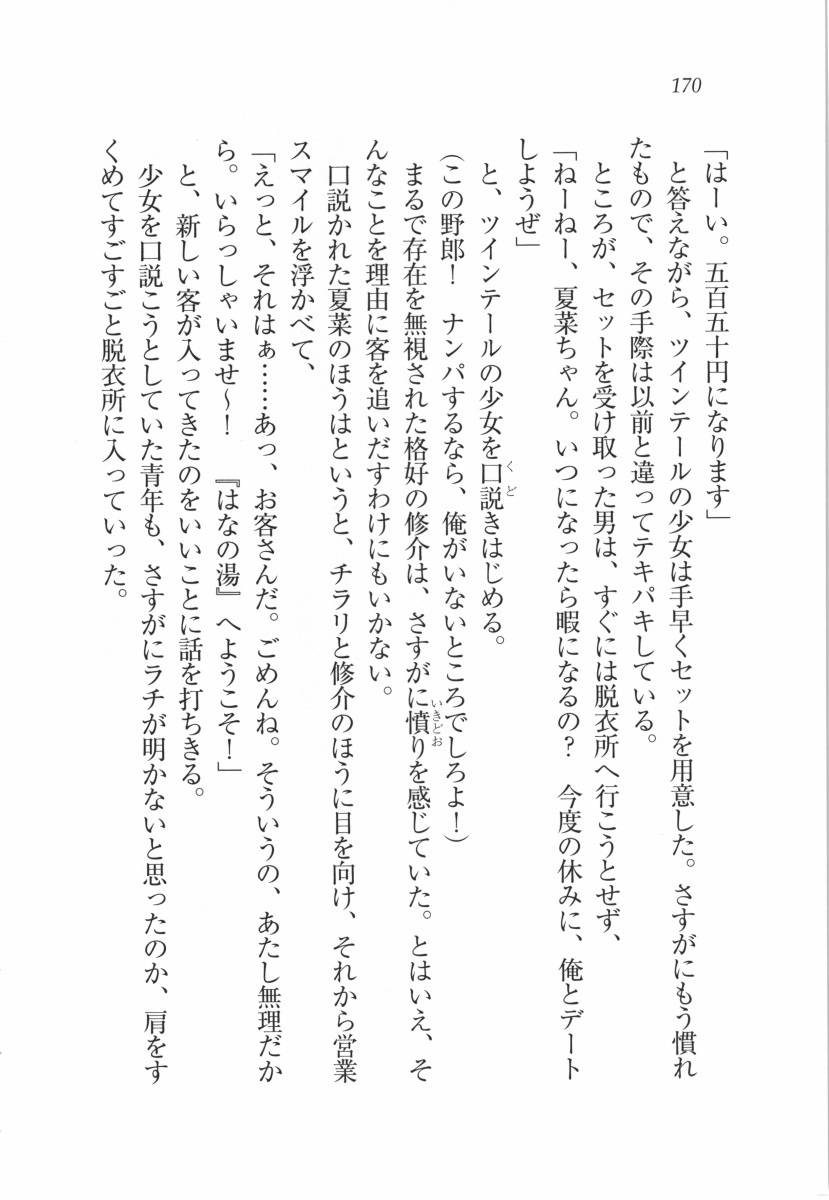 170
「はーい。五百五十円になります」
　と答えながら、ツインテールの少女は手早くセットを用意した。さすがにもう慣れ
たもので、その手際は以前と違ってテキパキしている。
　ところが、セットを受け取った男は、すぐには脱衣所へ行こうとせず、
「ねーねー、夏菜ちゃん。いつになったら暇になるの？　今度の休みに、俺とデート
しようぜ」
　と、ツインテールの少女を口説きはじめる。
（この野郎！　ナンパするなら、俺がいないところでしろよ！）
　まるで存在を無視された格好の修介は、さすがに憤りを感じていた。とはいえ、そ
んなことを理由に客を追いだすわけにもいかない。
　口説かれた夏菜のほうはというと、チラリと修介のほうに目を向け、それから営業
スマイルを浮かべて、
「えっと、それはぁ……あっ、お客さんだ。ごめんね。そういうの、あたし無理だか
ら。いらっしゃいませ〜！　『はなの湯』へようこそ！」
　と、新しい客が入ってきたのをいいことに話を打ちきる。
　少女を口説こうとしていた青年も、さすがにラチが明かないと思ったのか、肩をす
くめてすごすごと脱衣所に入っていった。